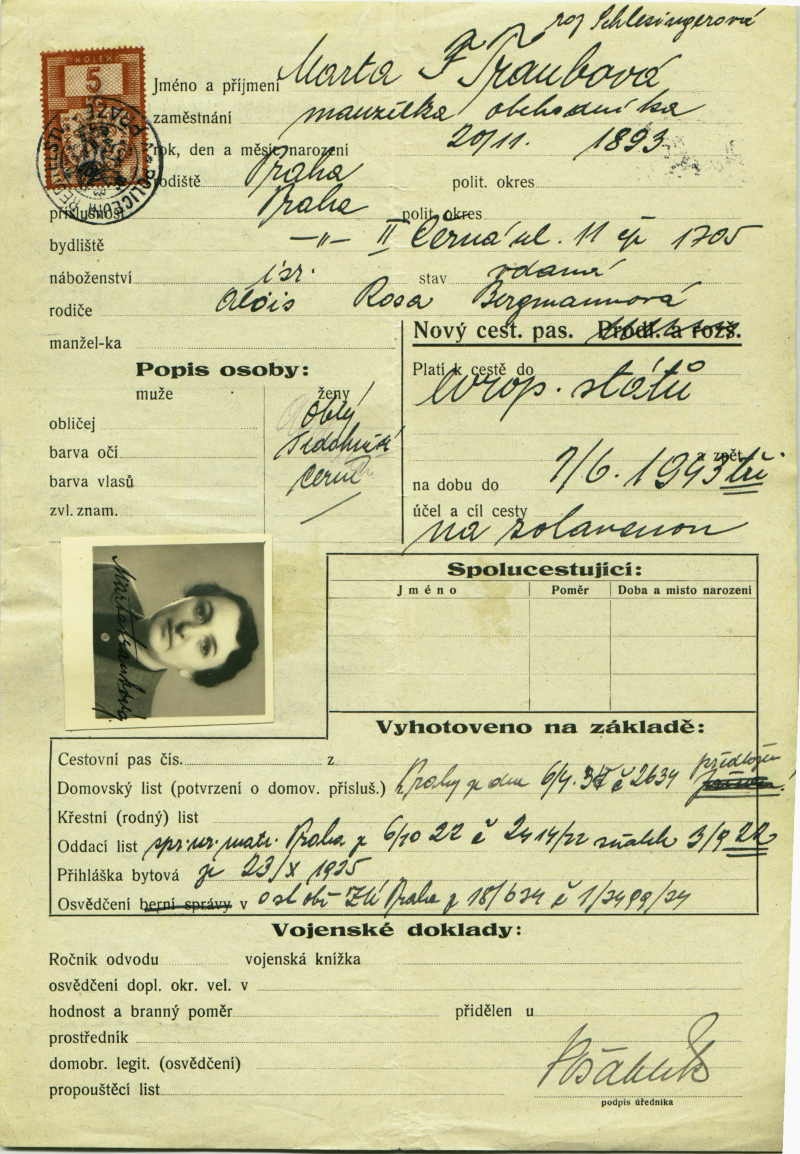 roz Schlesingerová
KOLEK
5
Jméno a příjmení Marta Traubová
zaměstnání manželka obchodníka
rok, den a měsíc narození 20/11. 1893
rodiště Praha polit. okres
příslušnost Praha polit. okres
bydliště —"— II Černá ul. 11 čp 1705
náboženství isr. stav vdaná
rodiče Alois Rosa Bergmannová
manžel-ka
Nový cest. pas. Prodl. a rozš.
Popis osoby:
Platí k cestě do
muže ženy
evrop. států
obličej oblý
barva očí
a zpět
barva vlasů černé
na dobu do 7/6. 1943 tři
zvl. znam. /
účel a cíl cesty
na zotavenou
Marta Traubová
Spolucestující:
Jméno Poměr Doba a místo narození
Vyhotoveno na základě:
Cestovní pas čís. z
Domovský list (potvrzení o domov. přísluš.) Prahy ze dne 6/4. č 2634 předložen
Křestní (rodný) list
Oddací list spr. ur. matr. Praha z 6/10 22 č 2414/22 sňatek 3/9 22
Přihláška bytová z 23/X 1935
Osvědčení berní správy v Praha z 18/6 34 č 1/3499/34
Vojenské doklady:
Ročník odvodu vojenská knížka
osvědčení dopl. okr. vel. v
hodnost a branný poměr přidělen u
prostředník
domobr. legit. (osvědčení)
propouštěcí list
podpis úředníka